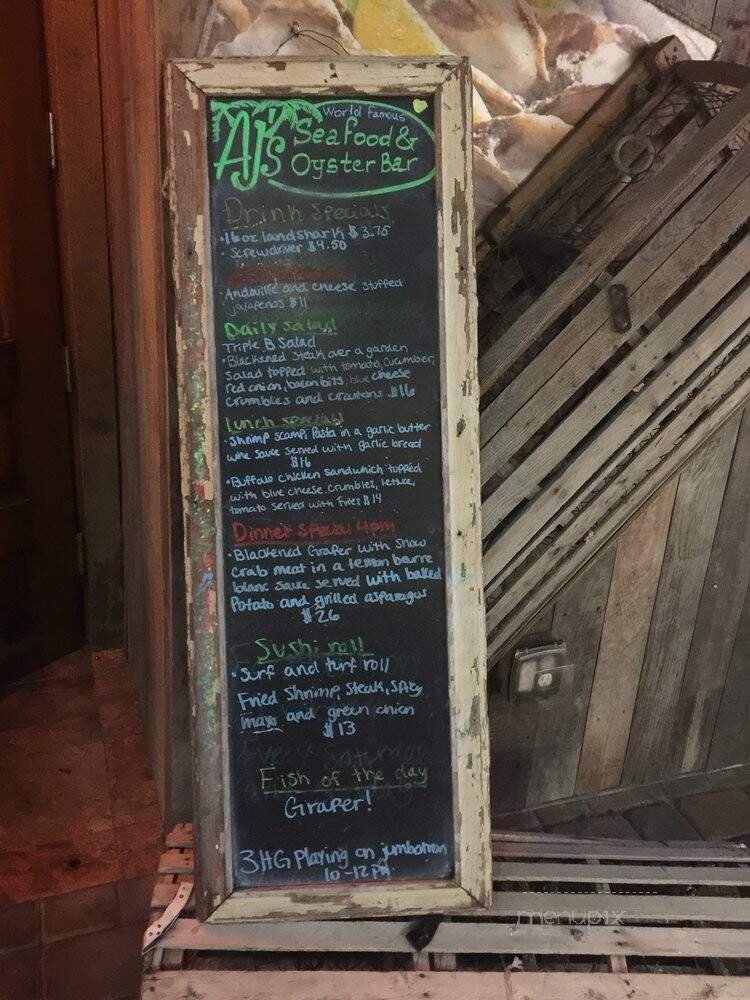 World Famous
AJ's Seafood &
Oyster Bar
Drink Specials
• 16oz landshark $3.75
• Screwdriver $4.50
Andouille and cheese stuffed
jalapenos $11
Daily salad
Triple B Salad
• Blackened steak over a garden
Salad topped with tomato, cucumber,
red onion, bacon bits, blue cheese
crumbles and croutons $16
lunch special
• Shrimp scampi Pasta in a garlic butter
wine sauce served with garlic bread
$16
• Buffalo chicken sandwhich topped
with blue cheese crumbles, lettuce,
tomato served with Fries $14
Dinner Special 4pm
• Blackened Graper with Snow
crab meat in a lemon beurre
blanc sauce served with baked
Potato and grilled asparagus
$26
Sushi roll
• Surf and turf roll
Fried Shrimp, Steak, Spicy
mayo and green onion
$13
Fish of the day
Graper!
3HG Playing on jumbotron
10-12pm
menupix